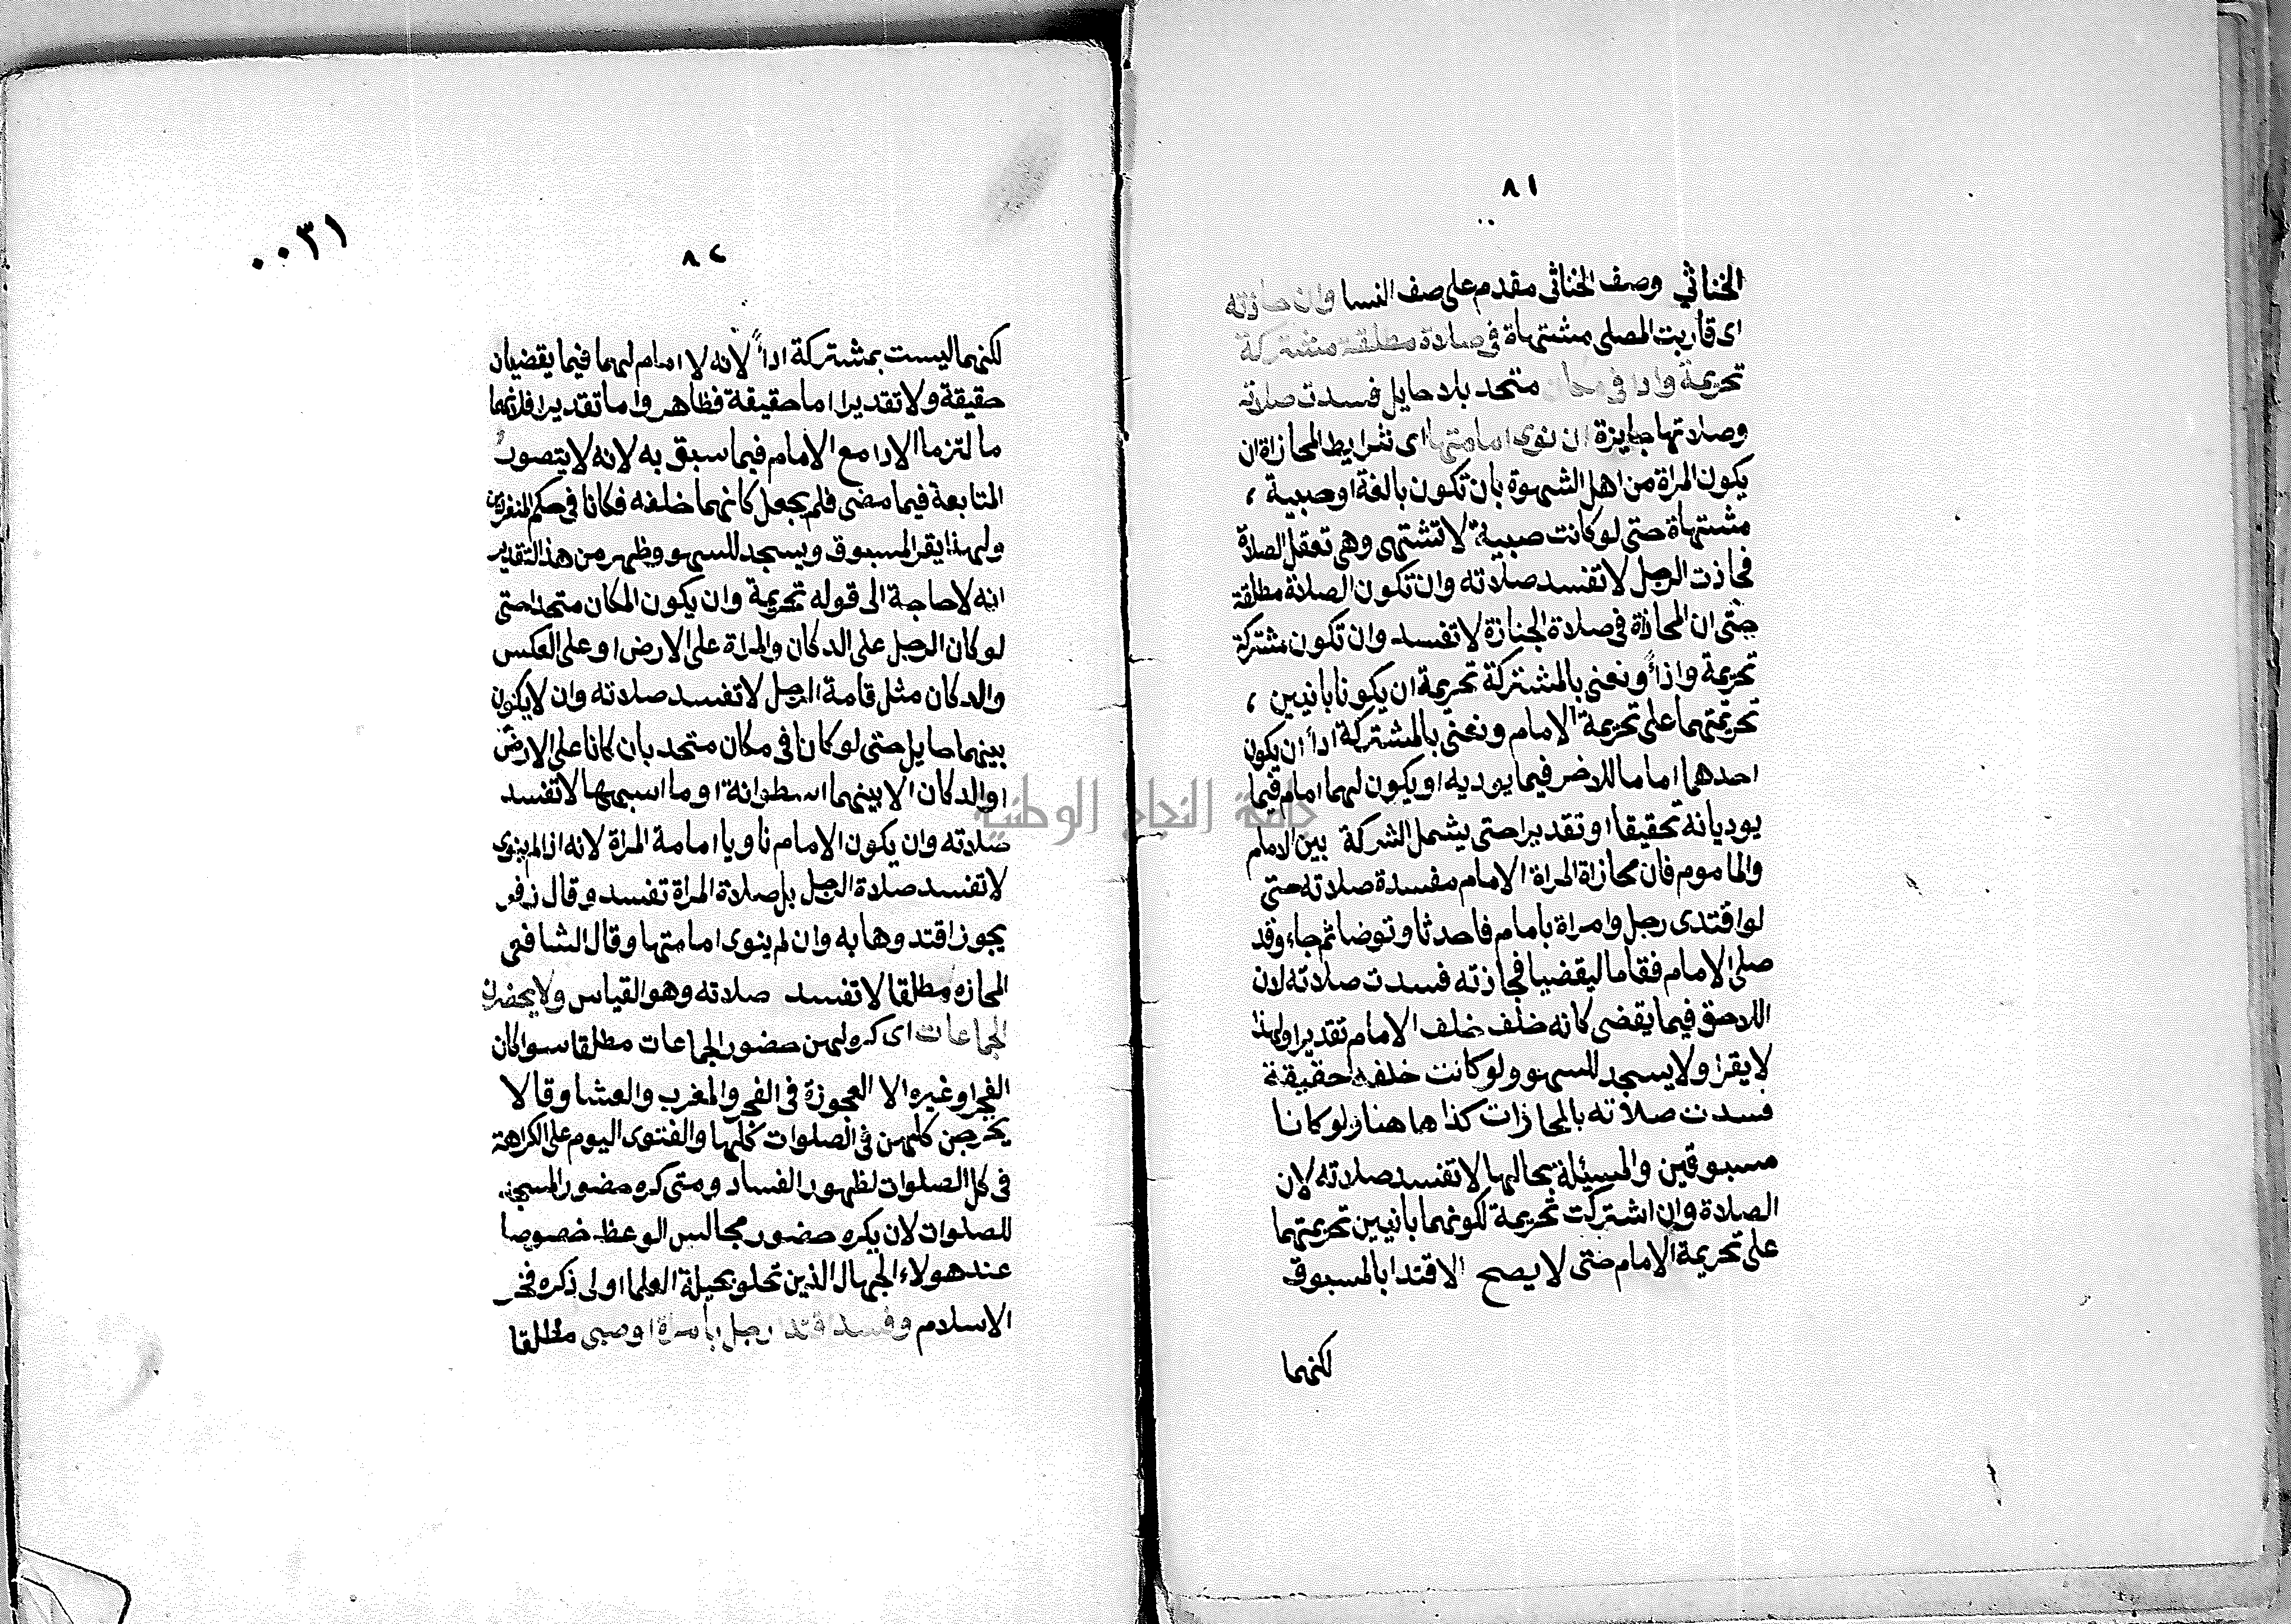 ٨١
الخناثي وصف الخناثى مقدم على صف النسا وان حاذته
اى قاربت المصلى مشتهاة فى صلاة مطلقة مشتركة
تحريمة وادا فى مكان متحد بلا حايل فسدت صلاته
وصلاتها جايزة ان نوى امامتها اى شرايط المحازاة ان
يكون المراة من اهل الشهوة بان تكون بالغة او صبية ،
مشتهاة حتى لو كانت صبية لا تشتهى وهى تعقل الصلاة
فحاذت الرجل لا تفسد صلاته وان تكون الصلاة مطلقة
حتى ان المحاذاة فى صلاة الجنازة لا تفسد وان تكون مشتركة
تحريمة واذاً ونعنى بالمشتركة تحريمة ان يكونا بانيين ،
تحريمتهما على تحريمة الامام ونعنى بالمشتركة اداً ان يكون
احدهما اماما للاخر فيما يوديه او يكون لهما امام فيما
يوديانه تحقيقا او تقديرا حتى يشمل الشركة بين الامام
والماموم فان محازاة المراة الامام مفسدة صلاته حتى
لو اقتدى رجل وامراة بامام فاحدثا وتوضا ثم جاء وقد
صلى الامام فقاما ليقضيا فحازته فسدت صلاته لان
اللاحق فيما يقضى كانه خلف خلف الامام تقديرا ولهذا
لا يقرا ولا يسجد للسهو ولو كانت خلفه حقيقة
فسدت صلاته بالمحاذات كذا هاهنا ولو كانا
مسبوقين والمسئلة بحالها لا تفسد صلاته لان
الصلاة وان اشتركت تحريمة لكونهما بانيين تحريمتهما
على تحريمة الامام حتى لا يصح الاقتدا بالمسبوق
لكنهما
٠٠٣١
٨٢
لكنهما ليست بمشتركة اداً لانه لا امام لهما فيما يقضيان
حقيقة ولا تقديرا اما حقيقة فظاهر واما تقديرا فلانهما
ما لتزما الادا مع الامام فيما سبق به لانه لا يتصور
المتابعة فيما مضى فلم يجعل كانهما خلفه فكانا فى حكم المنفردين
ولهذا يقر المسبوق ويسجد للسهو وظهر من هذ التقدير
انه لا حاجة الى قوله تحريمة وان يكون المكان متحدا حتى
لو كان الرجل على الدكان والمراة على الارض او على العكس
والدكان مثل قامة الرجل لا تفسد صلاته وان لا يكون
بينهما حايل حتى لو كانا فى مكان متحد بان كانا على الارض
او الدكان الا بينهما اسطوانة او ما اسبهها لا تفسد
صلاته وان يكون الامام ناويا امامة المراة لانه اذا لم ينوى
لا تفسد صلاة الرجل بل صلاة المراة تفسد وقال زفر
يجوز اقتدوها به وان لم ينوى امامتها وقال الشافعى
المحازه مطلقا لا تفسد صلاته وهو القياس ولا يحضرن
الجماعات اى كره لهن حضور الجماعات مطلقا سوا كان
الفجر او غيره الا العجوزة فى الفجر والمغرب والعشا وقالا
يخرجن كلهن فى الصلوات كلها والفتوى اليوم على الكراهة
فى كل الصلوات لظهور الفساد ومتى كره حضور المسجد
للصلوات لان يكره حضور مجالس الوعظ خصوصا
عند هولاء الجهال الذين تحلو بحيلة العلما اولى ذكره فخر
الاسلام وفسد اقتدا رجل بامراة او صبى مطلقا
جامعة النجاح الوطنية